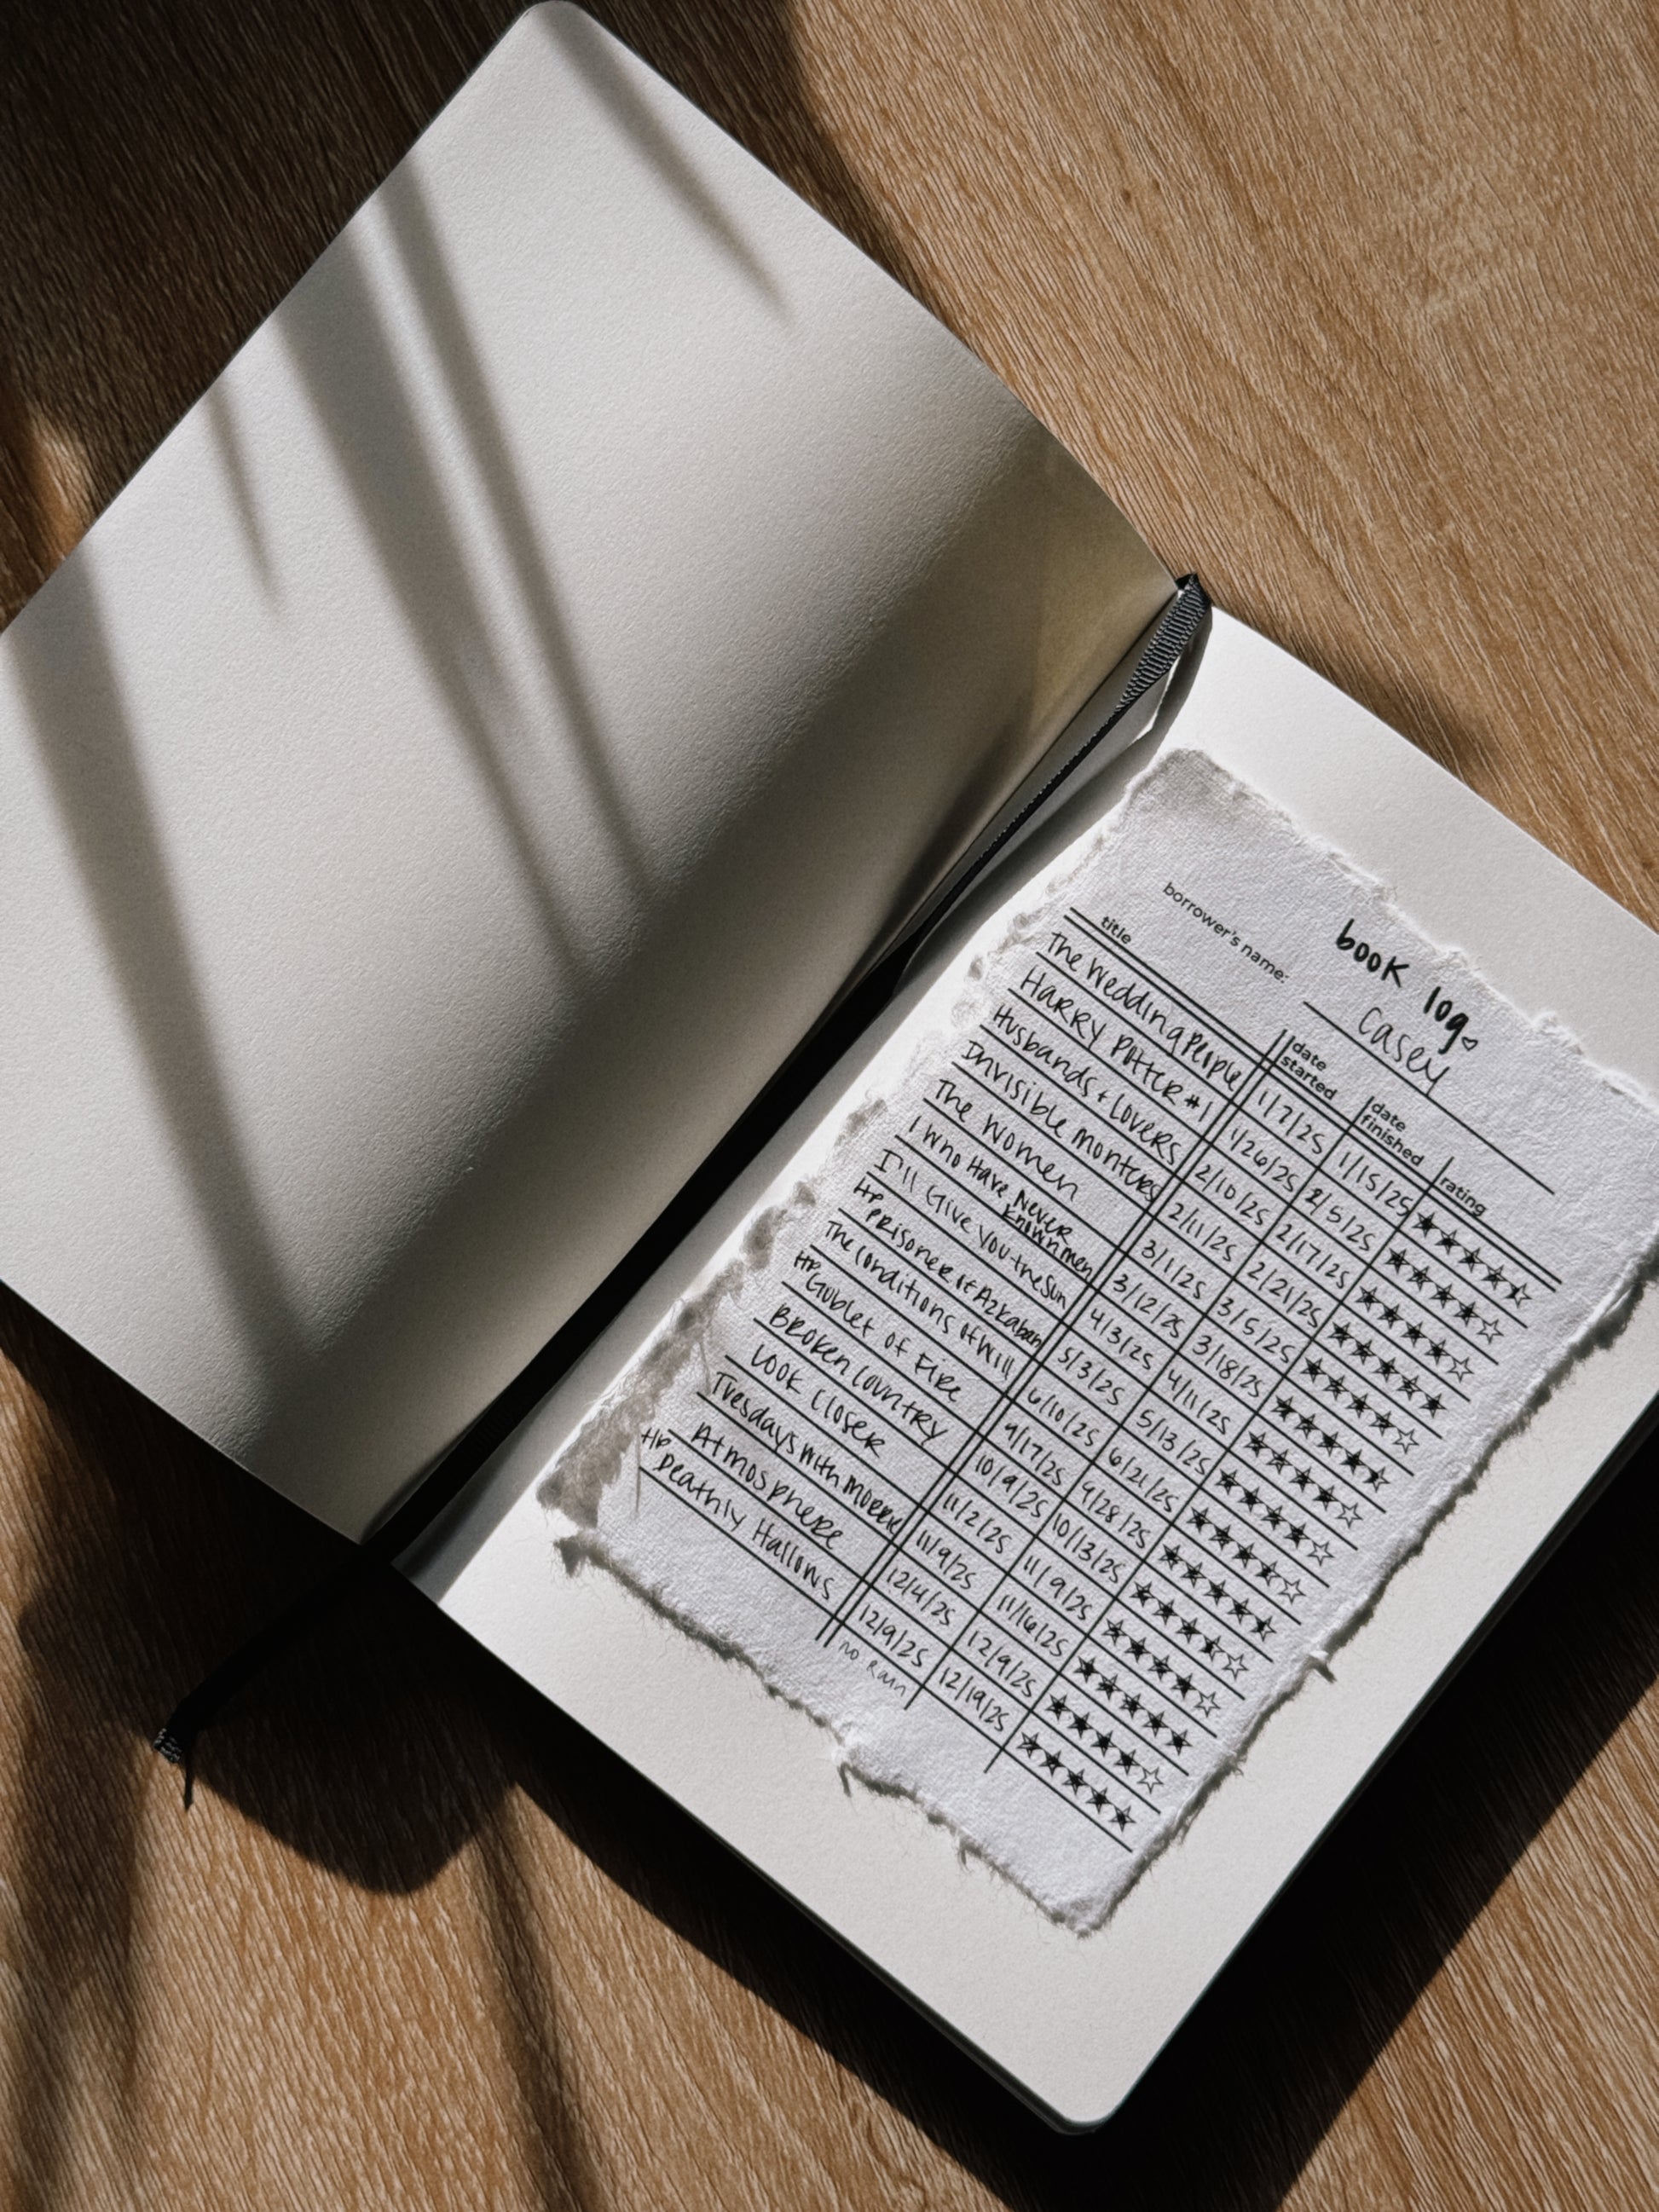 book log♡
borrower's name: Casey
title date started date finished rating
The Wedding People 1/7/25 1/15/25
HARRY POTTER #1 1/26/25 2/5/25
Husbands + Lovers 2/10/25 2/17/25
Invisible Monters 2/11/25 2/21/25
The Women 3/1/25 3/5/25
I Who Have Never Known Men 3/12/25 3/18/25
I'll Give You the Sun 4/3/25 4/11/25
HP Prisoner of Azkaban 5/3/25 5/13/25
The Conditions of Will 6/10/25 6/21/25
HP Goblet of Fire 9/17/25 9/28/25
Broken Country 10/9/25 10/13/25
Look Closer 11/2/25 11/9/25
Tuesdays with Morrie 11/9/25 11/16/25
Atmosphere 12/4/25 12/9/25
HP Deathly Hallows 12/9/25 12/19/25